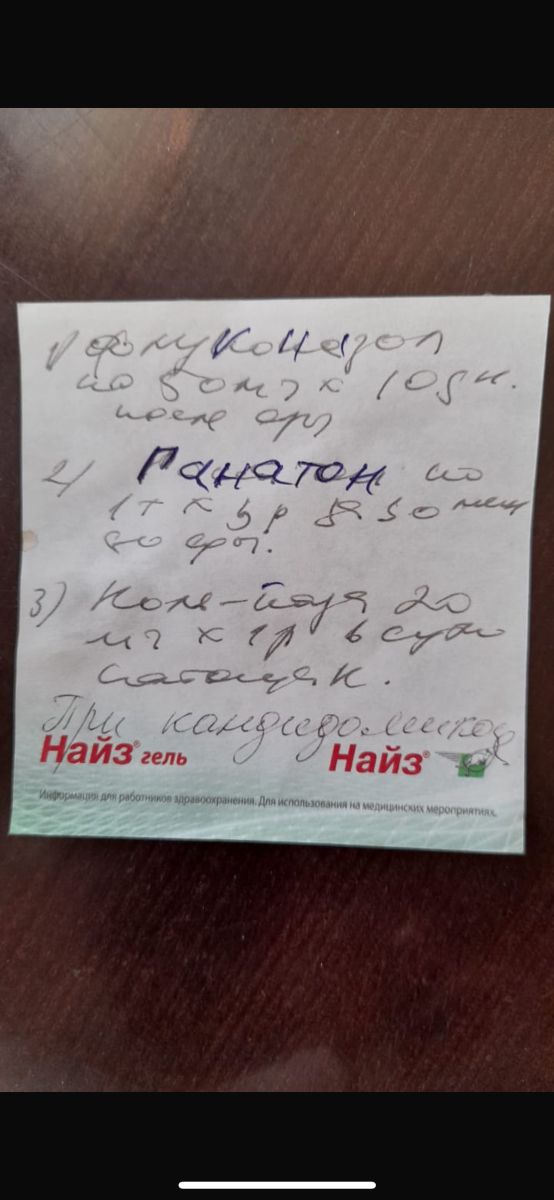 1) Флуконазол
по 50 мг х 10 дн.
после еды
2) Ганатон по
1т х 3р за 30 мин
до еды.
3) 20
мг х 1р в сутки
натощак.
При кандидомикозе
Найз® гель Найз®
Информация для работников здравоохранения. Для использования на медицинских мероприятиях.